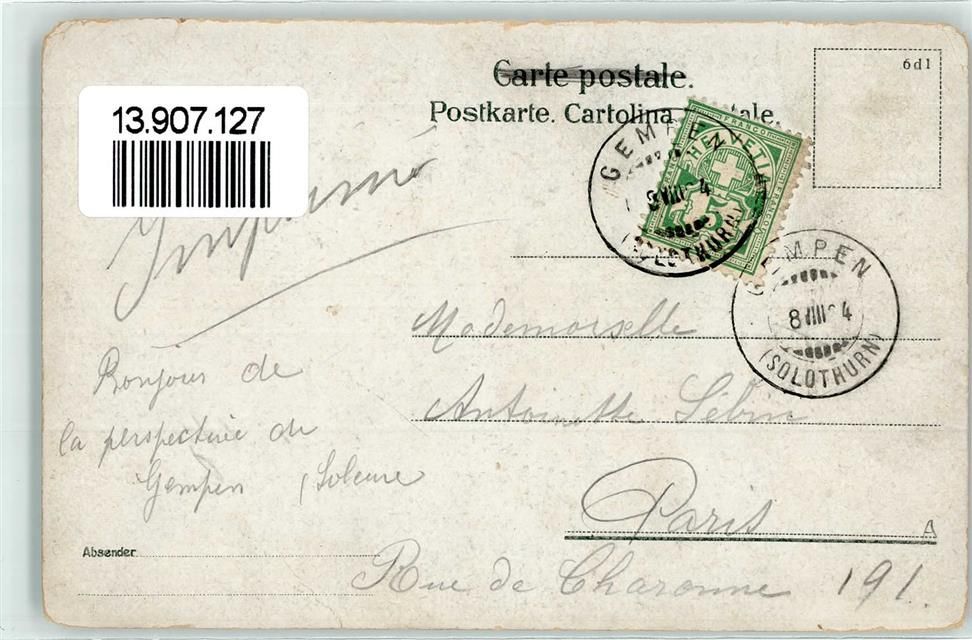 Carte postale.
Postkarte. Cartolina postale.
6d1
13.907.127
Imprimé
FRANCO
HELVETIA
5
GEMPEN
8 VIII 04
(SOLOTHURN)
GEMPEN
8 VIII 04
(SOLOTHURN)
Mademoiselle
Antoinette
Paris
Rue de Charonne 191.
A
Bonjour de
la perspective de
Gempen (Soleure
Absender